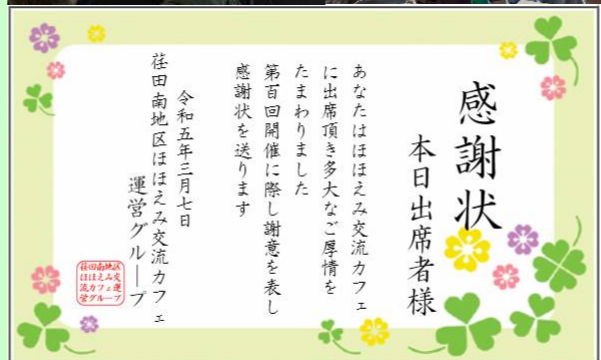 感謝状
本日出席者様
あなたはほほえみ交流カフェ
に出席頂き多大なご厚情を
たまわりました
第百回開催に際し謝意を表し
感謝状を送ります
令和五年三月七日
荏田南地区ほほえみ交流カフェ
運営グループ
荏田南地区
ほほえみ交
流カフェ運
営グループ